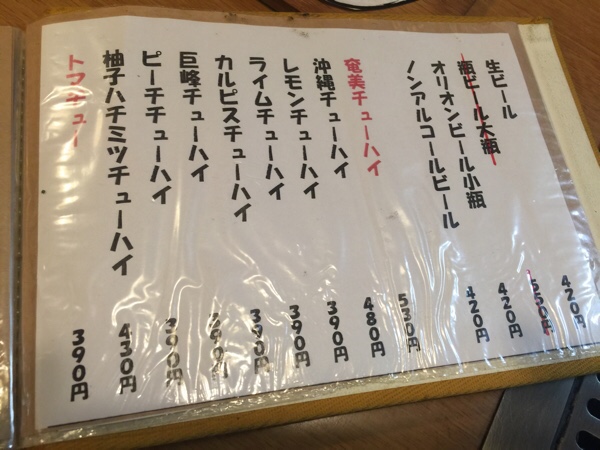 生ビール 420円
瓶ビール大瓶 550円
オリオンビール小瓶 420円
ノンアルコールビール 420円
奄美チューハイ 530円
沖縄チューハイ 480円
レモンチューハイ 390円
ライムチューハイ 390円
カルピスチューハイ 390円
巨峰チューハイ 390円
ピーチチューハイ 390円
柚子ハチミツチューハイ 430円
トマチュー 390円